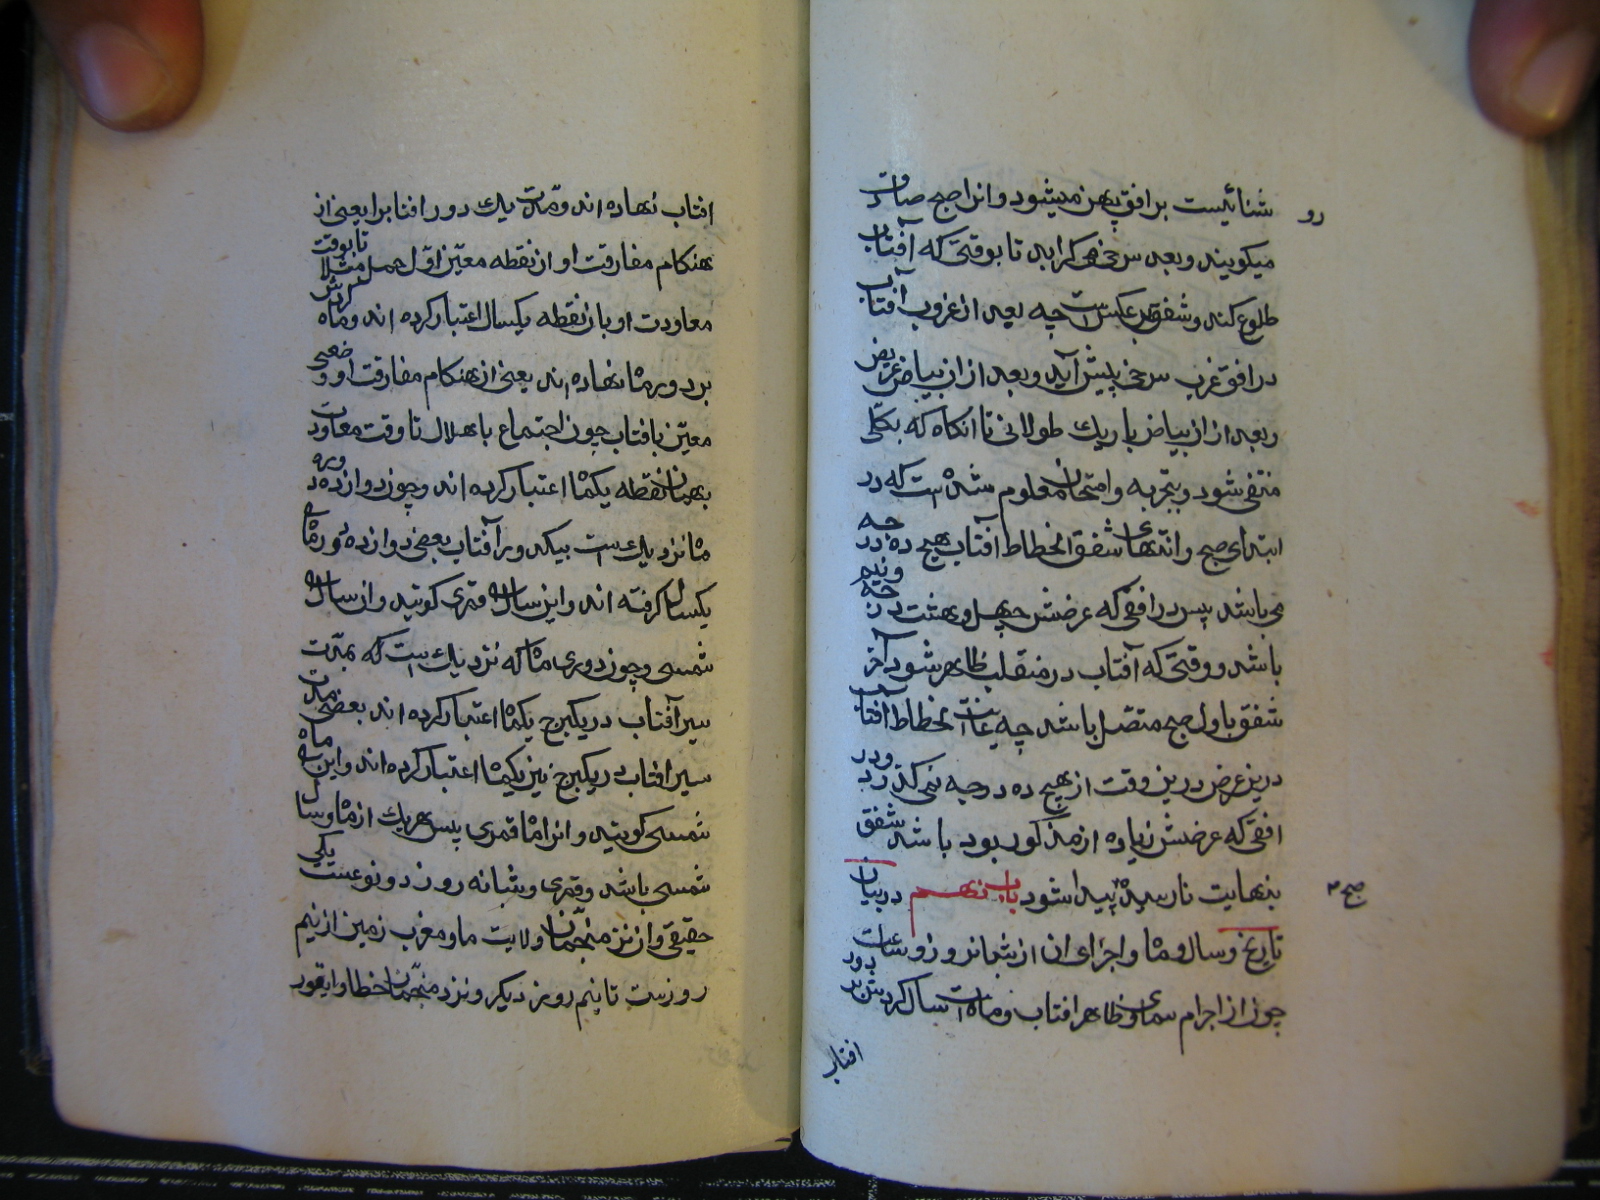 رو
شنائیست بر افق پهن میشود و انرا صبح صادق
میگویند و بعد سرخی گراید تا بوقتی که آفتاب
طلوع کند و شفق بر عکس است چه بعد از غروب آفتاب
در افق غرب سرخی پیش آید و بعد از ان بیاض عریض
و بعد از ان بیاض باریک طولانی تا انگاه که بکلی
منتفی شود و بتجربه و امتحان معلوم شده است که در
ابتدای صبح و انتهای شفق انحطاط آفتاب هیجده درجه
می باشد پس در افقی که عرضش چهل و هشت درجه ونیم
باشد و وقتی که آفتاب در منقلب ظاهر شود آخر
شفق باول صبح متصل باشد چه غایت انحطاط آفتاب
درین عرض درین وقت از هیجده درجه نمی گذرد ودر
افقی که عرضش زیاده از مذکور بود باشد شفق
بنهایت نارسیده پیدا شود باب نهم در بیان
صبح ۲
تاریخ و سال و ماه و اجزای ان از شبانروز و ساعات
چون از اجرام سماوی ظاهر افتاب و ماه است سال گردش بر دور
افتاب
افتاب نهاده اند و مدت یک دور افتابرا یعنی از
هنکام مفارقت او از نقطه معین اول حمل مثلا تا بوقت
معاودت او بان نقطه یکسال اعتبار کرده اند و ماه گردش
بر دور ماه نهاده اند یعنی از هنکام مفارقت او وضعی
معین با افتاب چون اجتماع یا هلال تا وقت معاودت
بهمان نقطه یکماه اعتبار کرده اند و چون دوازده دوره
ماه نزدیک است بیکدور آفتاب بعضی دوازده دوره ماه
یکسال گرفته اند و این سال قمری کویند و ان سال
شمسی و چون دوری ماه که نزدیک است که بمدت
سیر آفتاب در یکبرج یکماه اعتبار کرده اند بعضی مدت
سیر افتاب در یکبرج نیز یکماه اعتبار کرده اند و این ماه
شمسی کویند و انرا ماه قمری پس هر یک از ماه و سال
شمسی باشد و قمری و شبانه روز دو نوعست یکی
حقیقی و ان نزد منجمان ولایت ما و مغرب زمین از نیم
روزست تا نیم روز دیکر و نزد منجمان خطا و ایغور